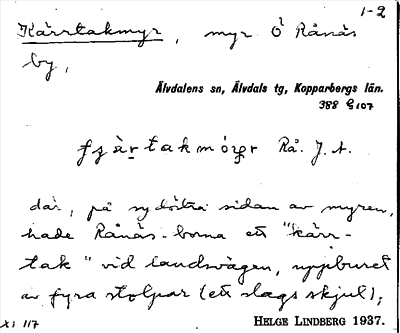 1-2
Kärrtakmyr, myr Ö Rånäs
by,
Älvdalens sn, Älvdals tg, Kopparbergs län.
388 G 107
Rå. J. A.
där, på sydöstra sidan av myren,
hade Rånäs-borna ett "kärr-
tak" vid landsvägen, uppburet
av fyra stolpar (ett slags skjul);
XI 117 HELGE LINDBERG 1937.